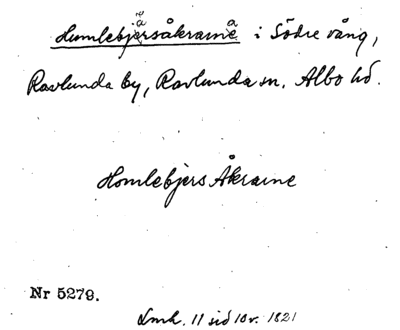 Humlebjersåkrarne i Södre vång,
Ravlunda by, Ravlunda sn. Albo hd.
Homlebjers Åkrarne
Nr 5279.
Lmh. 11 sid 10v. 1821